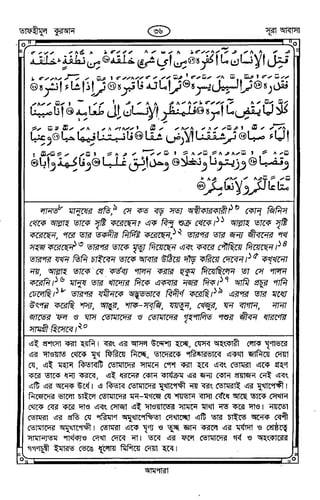 তাফহীমুল কুরআন
৩৬
সূরা আবাসা
قُتِلَ الْإِنْسَانُ مَا أَكْفَرَهُ ۝ مِنْ أَيِّ شَيْءٍ خَلَقَهُ ۝ مِنْ نُطْفَةٍ خَلَقَهُ
فَقَدَّرَهُ ۝ ثُمَّ السَّبِيلَ يَسَّرَهُ ۝ ثُمَّ أَمَاتَهُ فَأَقْبَرَهُ ۝ ثُمَّ إِذَا شَاءَ أَنْشَرَهُ ۝
كَلَّا لَمَّا يَقْضِ مَا أَمَرَهُ ۝ فَلْيَنْظُرِ الْإِنْسَانُ إِلَى طَعَامِهِ ۝ أَنَّا صَبَبْنَا
الْمَاءَ صَبًّا ۝ ثُمَّ شَقَقْنَا الْأَرْضَ شَقًّا ۝ فَأَنْبَتْنَا فِيهَا حَبًّا ۝ وَعِنَبًا
وَقَضْبًا ۝ وَزَيْتُونًا وَنَخْلًا ۝ وَحَدَائِقَ غُلْبًا ۝ وَفَاكِهَةً وَأَبًّا ۝
مَتَاعًا لَكُمْ وَلِأَنْعَامِكُمْ ۝
লানত মানুষের প্রতি, সে কত বড় সত্য অস্বীকারকারী! কোন্ জিনিস
থেকে আল্লাহ তাকে সৃষ্টি করেছেন? এক বিন্দু শুক্র থেকে। আল্লাহ তাকে সৃষ্টি
করেছেন, পরে তার তকদীর নির্দিষ্ট করেছেন, তারপর তার জন্য জীবনের পথ
সহজ করেছেন তারপর তাকে মৃত্যু দিয়েছেন এবং কবরে পৌঁছিয়ে দিয়েছেন।
তারপর যখন তিনি চাইবেন তাকে আবার উঠিয়ে দাঁড় করিয়ে দেবেন। কখখনো
নয়, আল্লাহ তাকে যে কর্তব্য পালন করার হুকুম দিয়েছিলেন তা সে পালন
করেনি। মানুষ তার খাদ্যের দিকে একবার নজর দিক। আমি প্রচুর পানি
ঢেলেছি। তারপর যমীনকে অদ্ভুতভাবে বিদীর্ণ করেছি। এরপর তার মধ্যে
উৎপন্ন করেছি শস্য, আঙুর, শাক-সব্জি, যয়তুন, খেজুর, ঘন বাগান, নানা
জাতের ফল ও ঘাস তোমাদের ও তোমাদের গৃহপালিত পশুর জীবন ধারণের
সামগ্রী হিসেবে।
এই প্রশংসা করা হয়নি। বরং এর আসল উদ্দেশ্য হচ্ছে, যেসব অহংকারী লোক ঘৃণাভরে
এর দাওয়াত থেকে মুখ ফিরিয়ে নিচ্ছে, তাদেরকে পরিষ্কারভাবে একথা জানিয়ে দেয়া
যে, এই মহান কিতাবটি তোমাদের সামনে পেশ করা হবে এবং তোমরা একে গ্রহণ
করে তাকে ধন্য করবে, এই ধরনের কোন কার্যক্রম এর জন্য কোন প্রয়োজন নেই এবং
এটি এর অনেক উর্ধে। এ কিতাব তোমাদের মুখাপেক্ষী নয় বরং তোমরাই এর মুখাপেক্ষী।
নিজেদের ভালো চাইলে তোমাদের মন-মগজে যে শয়তান বাসা বেঁধে আছে তাকে সেখান
থেকে বের করে দাও এবং সোজা এই দাওয়াতের সামনে মাথা নত করে দাও। নয়তো
তোমরা এর প্রতি যে পরিমাণ অমুখাপেক্ষিতা দেখাচ্ছো এটি তার চাইতে অনেক বেশী
তোমাদের অমুখাপেক্ষী। তোমরা একে ঘৃণ্য ও তুচ্ছ জ্ঞান করলে এর মর্যাদা ও শ্রেষ্ঠত্বে
সামান্যতম পার্থক্যও দেখা দেবে না। তবে এর ফলে তোমাদের গর্ব ও অহংকারের
গগণচুম্বী ইমারত ভেঙে ধূলোয় মিশিয়ে দেয়া হবে।
আমপারা